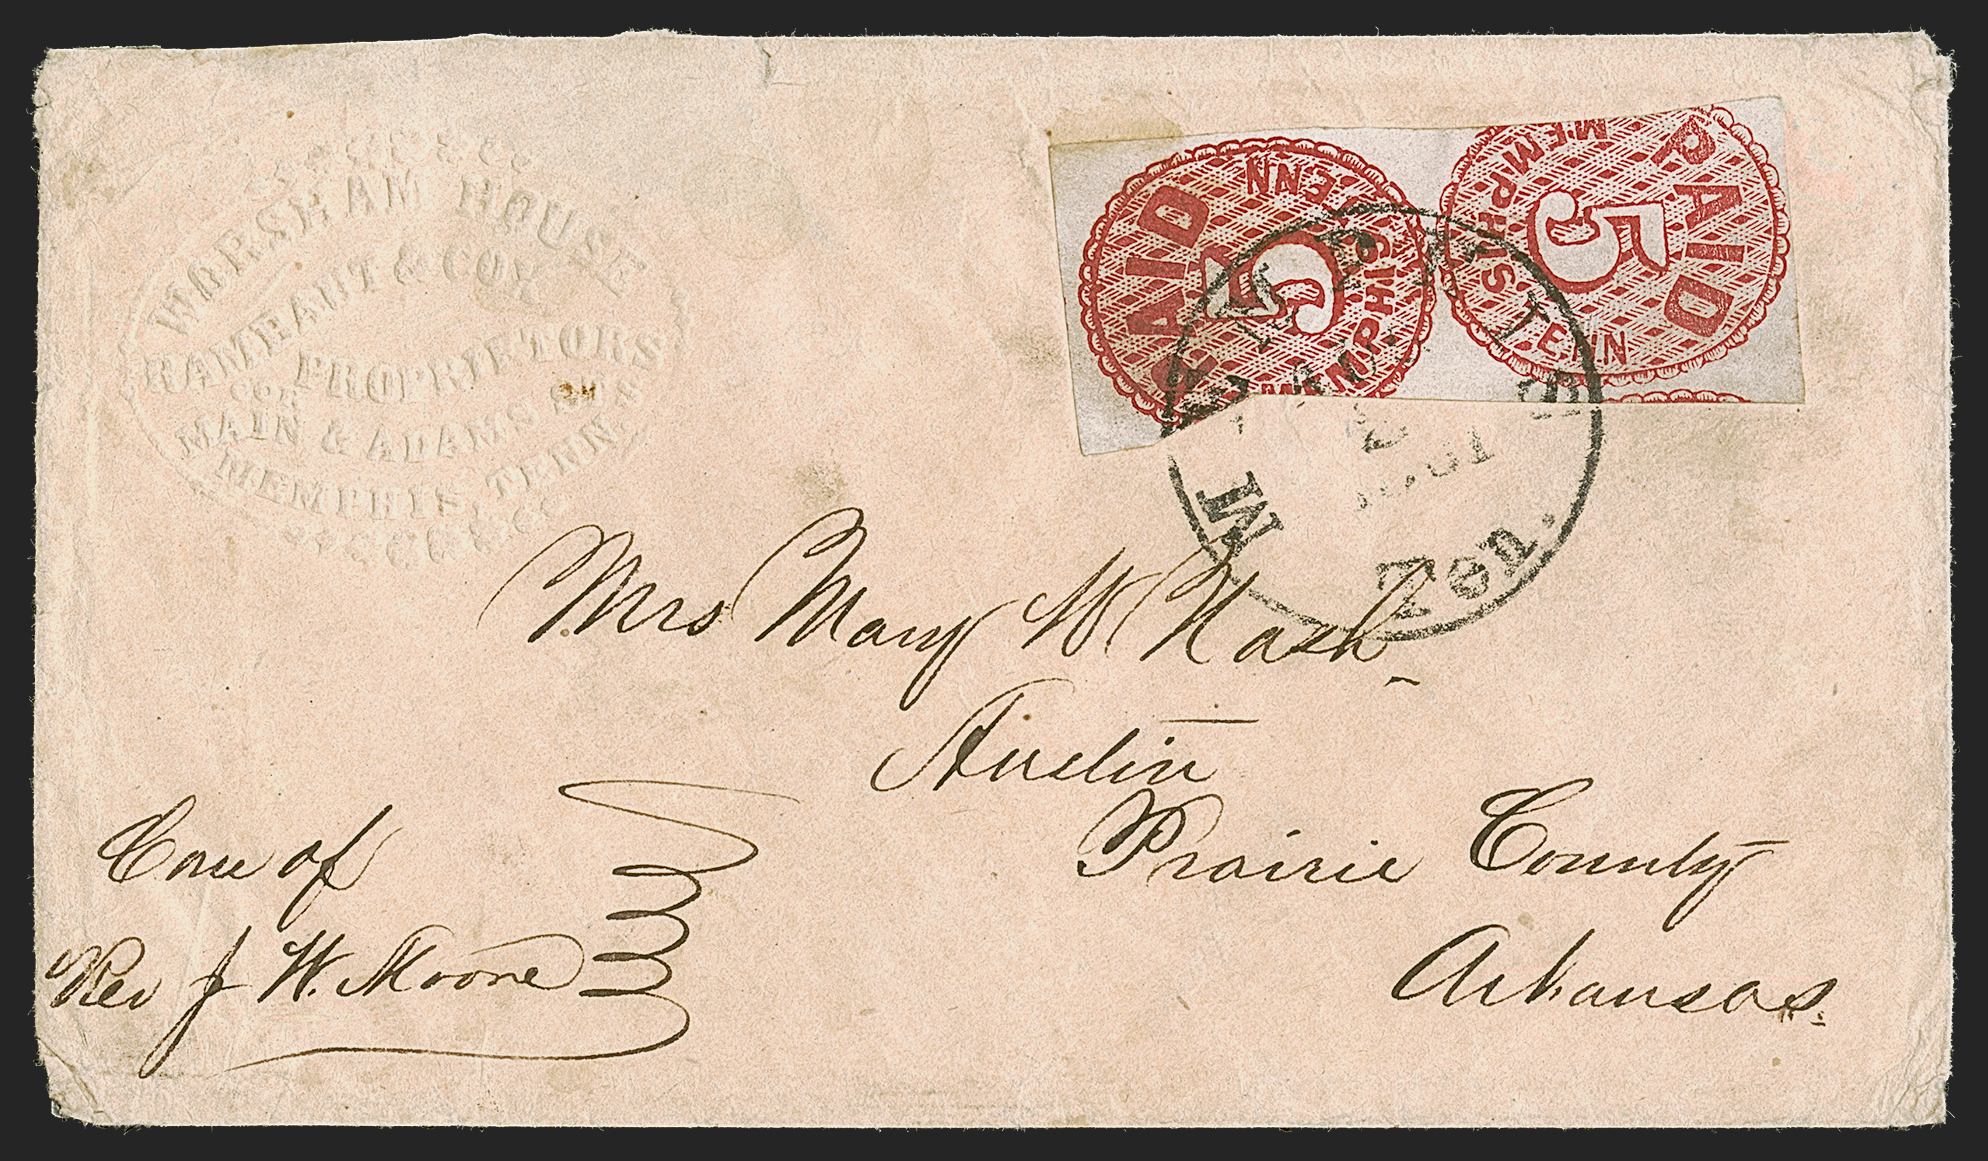 WORSHAM HOUSE
HAMBAUT & COX
PROPRIETORS
COR
MAIN & ADAMS STS
MEMPHIS, TENN.
PAID
5
MEMPHIS TENN
PAID
5
MEMPHIS TENN
MEMPHIS
1861
Ten.
Mrs Mary W Nash
Austin
Prairie County
Arkansas.
Care of
Rev J W. Moore